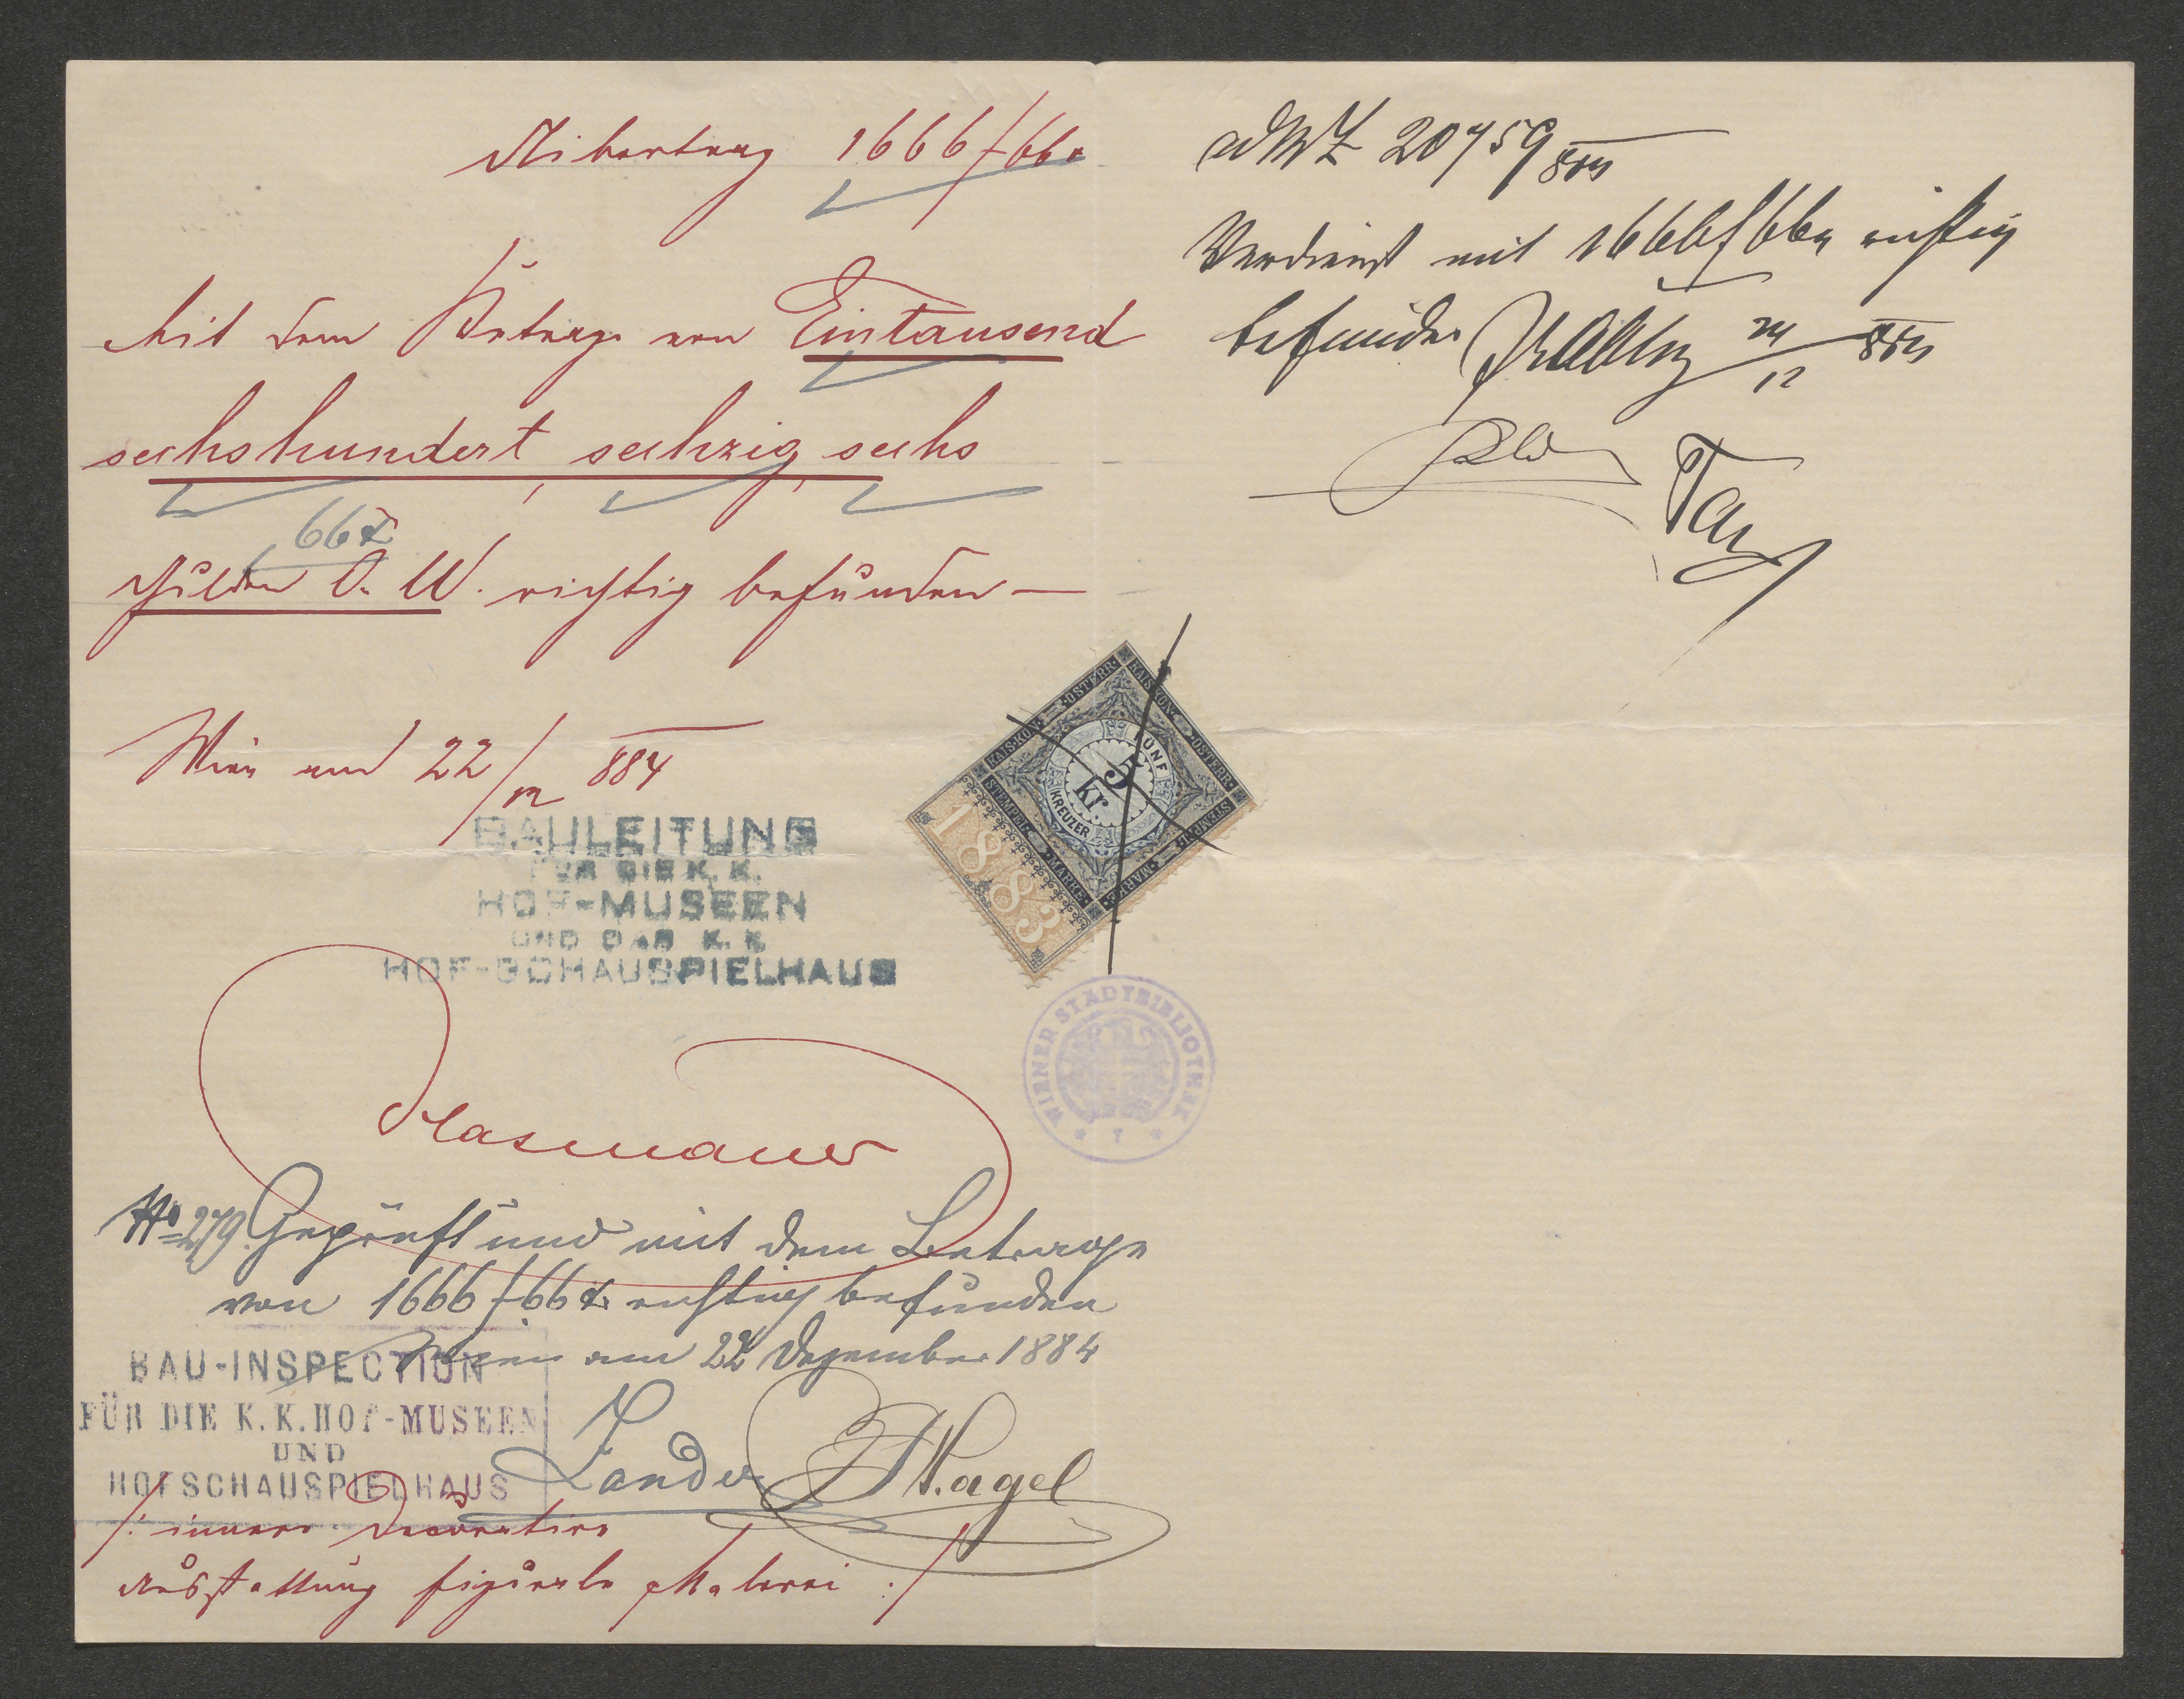 Übertrag 1666 f 66 x
Mit dem Betrage von Eintausend
sechshundert sechzig sechs
66 x
Gulden Ö. W. richtig befunden —
Wien am 22/12 884
BAULEITUNG
FÜR DIE K. K.
HOF-MUSEEN
UND DAS K. K.
HOF-SCHAUSPIELHAUS
Hasenauer
No 279. Geprüft und mit dem Betrage
von 1666 f 66 x richtig befunden
Wien am 22 Dezember 1884
BAU-INSPECTION
FÜR DIE K. K. HOF-MUSEEN
UND
HOFSCHAUSPIELHAUS
Nagel
/: innere Decorative
Ausstattung figurale Malerei :/
KAIS·KÖN· ÖSTERR·
KAIS·KÖN· ÖSTERR·
STEMPEL MARKE
STEMPEL MARKE
FÜNF
5
kr.
KREUZER
1883
WIENER STADTBIBLIOTHEK
* 7 *
20759
Verdienst mit 1666 f 66 x richtig
befunden